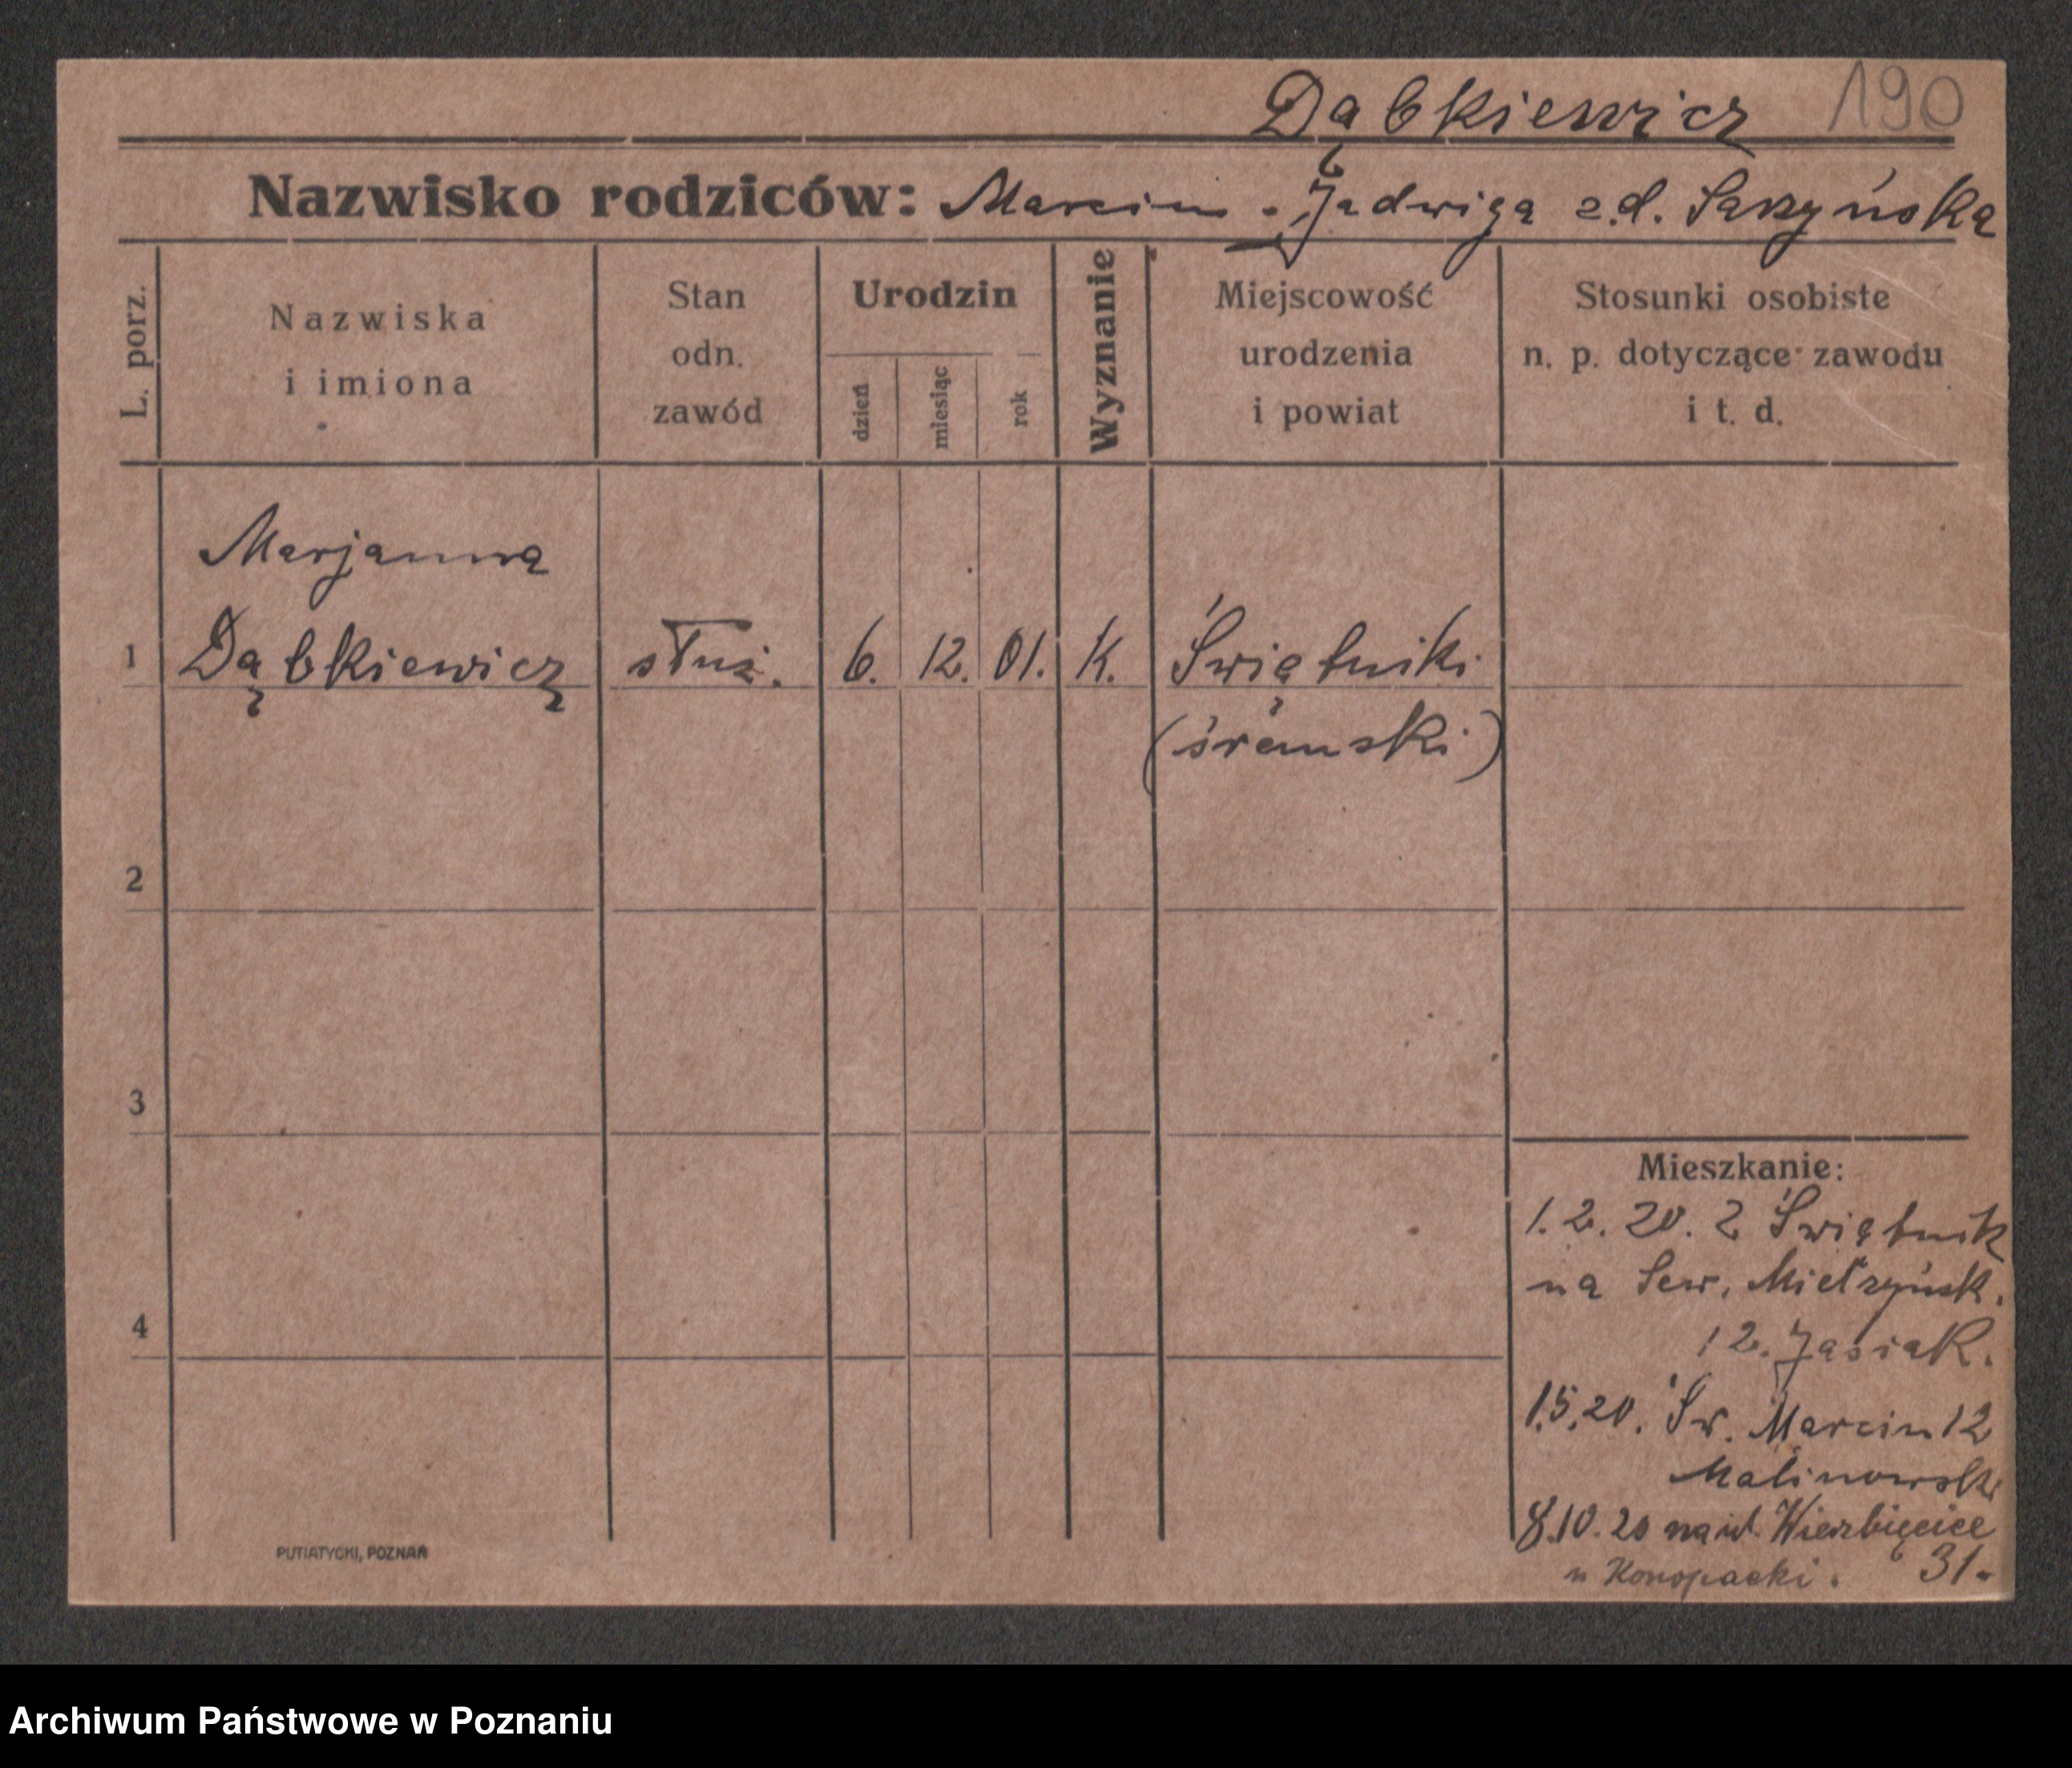 Dąbkiewicz 190
Nazwisko rodziców: Marcin - Jadwiga z.d. Saszyńska
L. porz.
Nazwiska
i imiona
Stan
odn.
zawód
Urodzin
dzień
miesiąc
rok
Wyznanie
Miejscowość
urodzenia
i powiat
Stosunki osobiste
n. p. dotyczące zawodu
i t. d.
Marjanna
1 Dąbkiewicz służ. 6. 12. 01. K. Świątniki
(śremski)
2
3
4
Mieszkanie:
1. 2. 20. z Świątnik
na Sew. Mielżyńsk.
12. Jasiak.
1.5.20. Św. Marcin 12
Malinowski
8.10.20 na ul. Wierzbięcice
u Konopacki. 31.
PUTIATYCKI, POZNAŃ
Archiwum Państwowe w Poznaniu